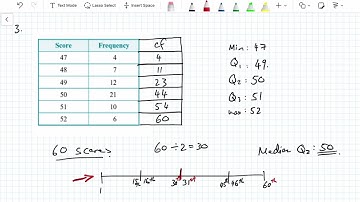 Text Mode
Lasso Select
Insert Space
3.
Score Frequency cf
47 4 4
48 7 11
49 12 23
50 21 44
51 10 54
52 6 60
Min: 47
Q₁: 49.
Q₂: 50
Q₃: 51
max: 52
60 scores
60 ÷ 2 = 30
Median Q₂: 50.
1 15th 16th 30th 31st 45th 46th 60th